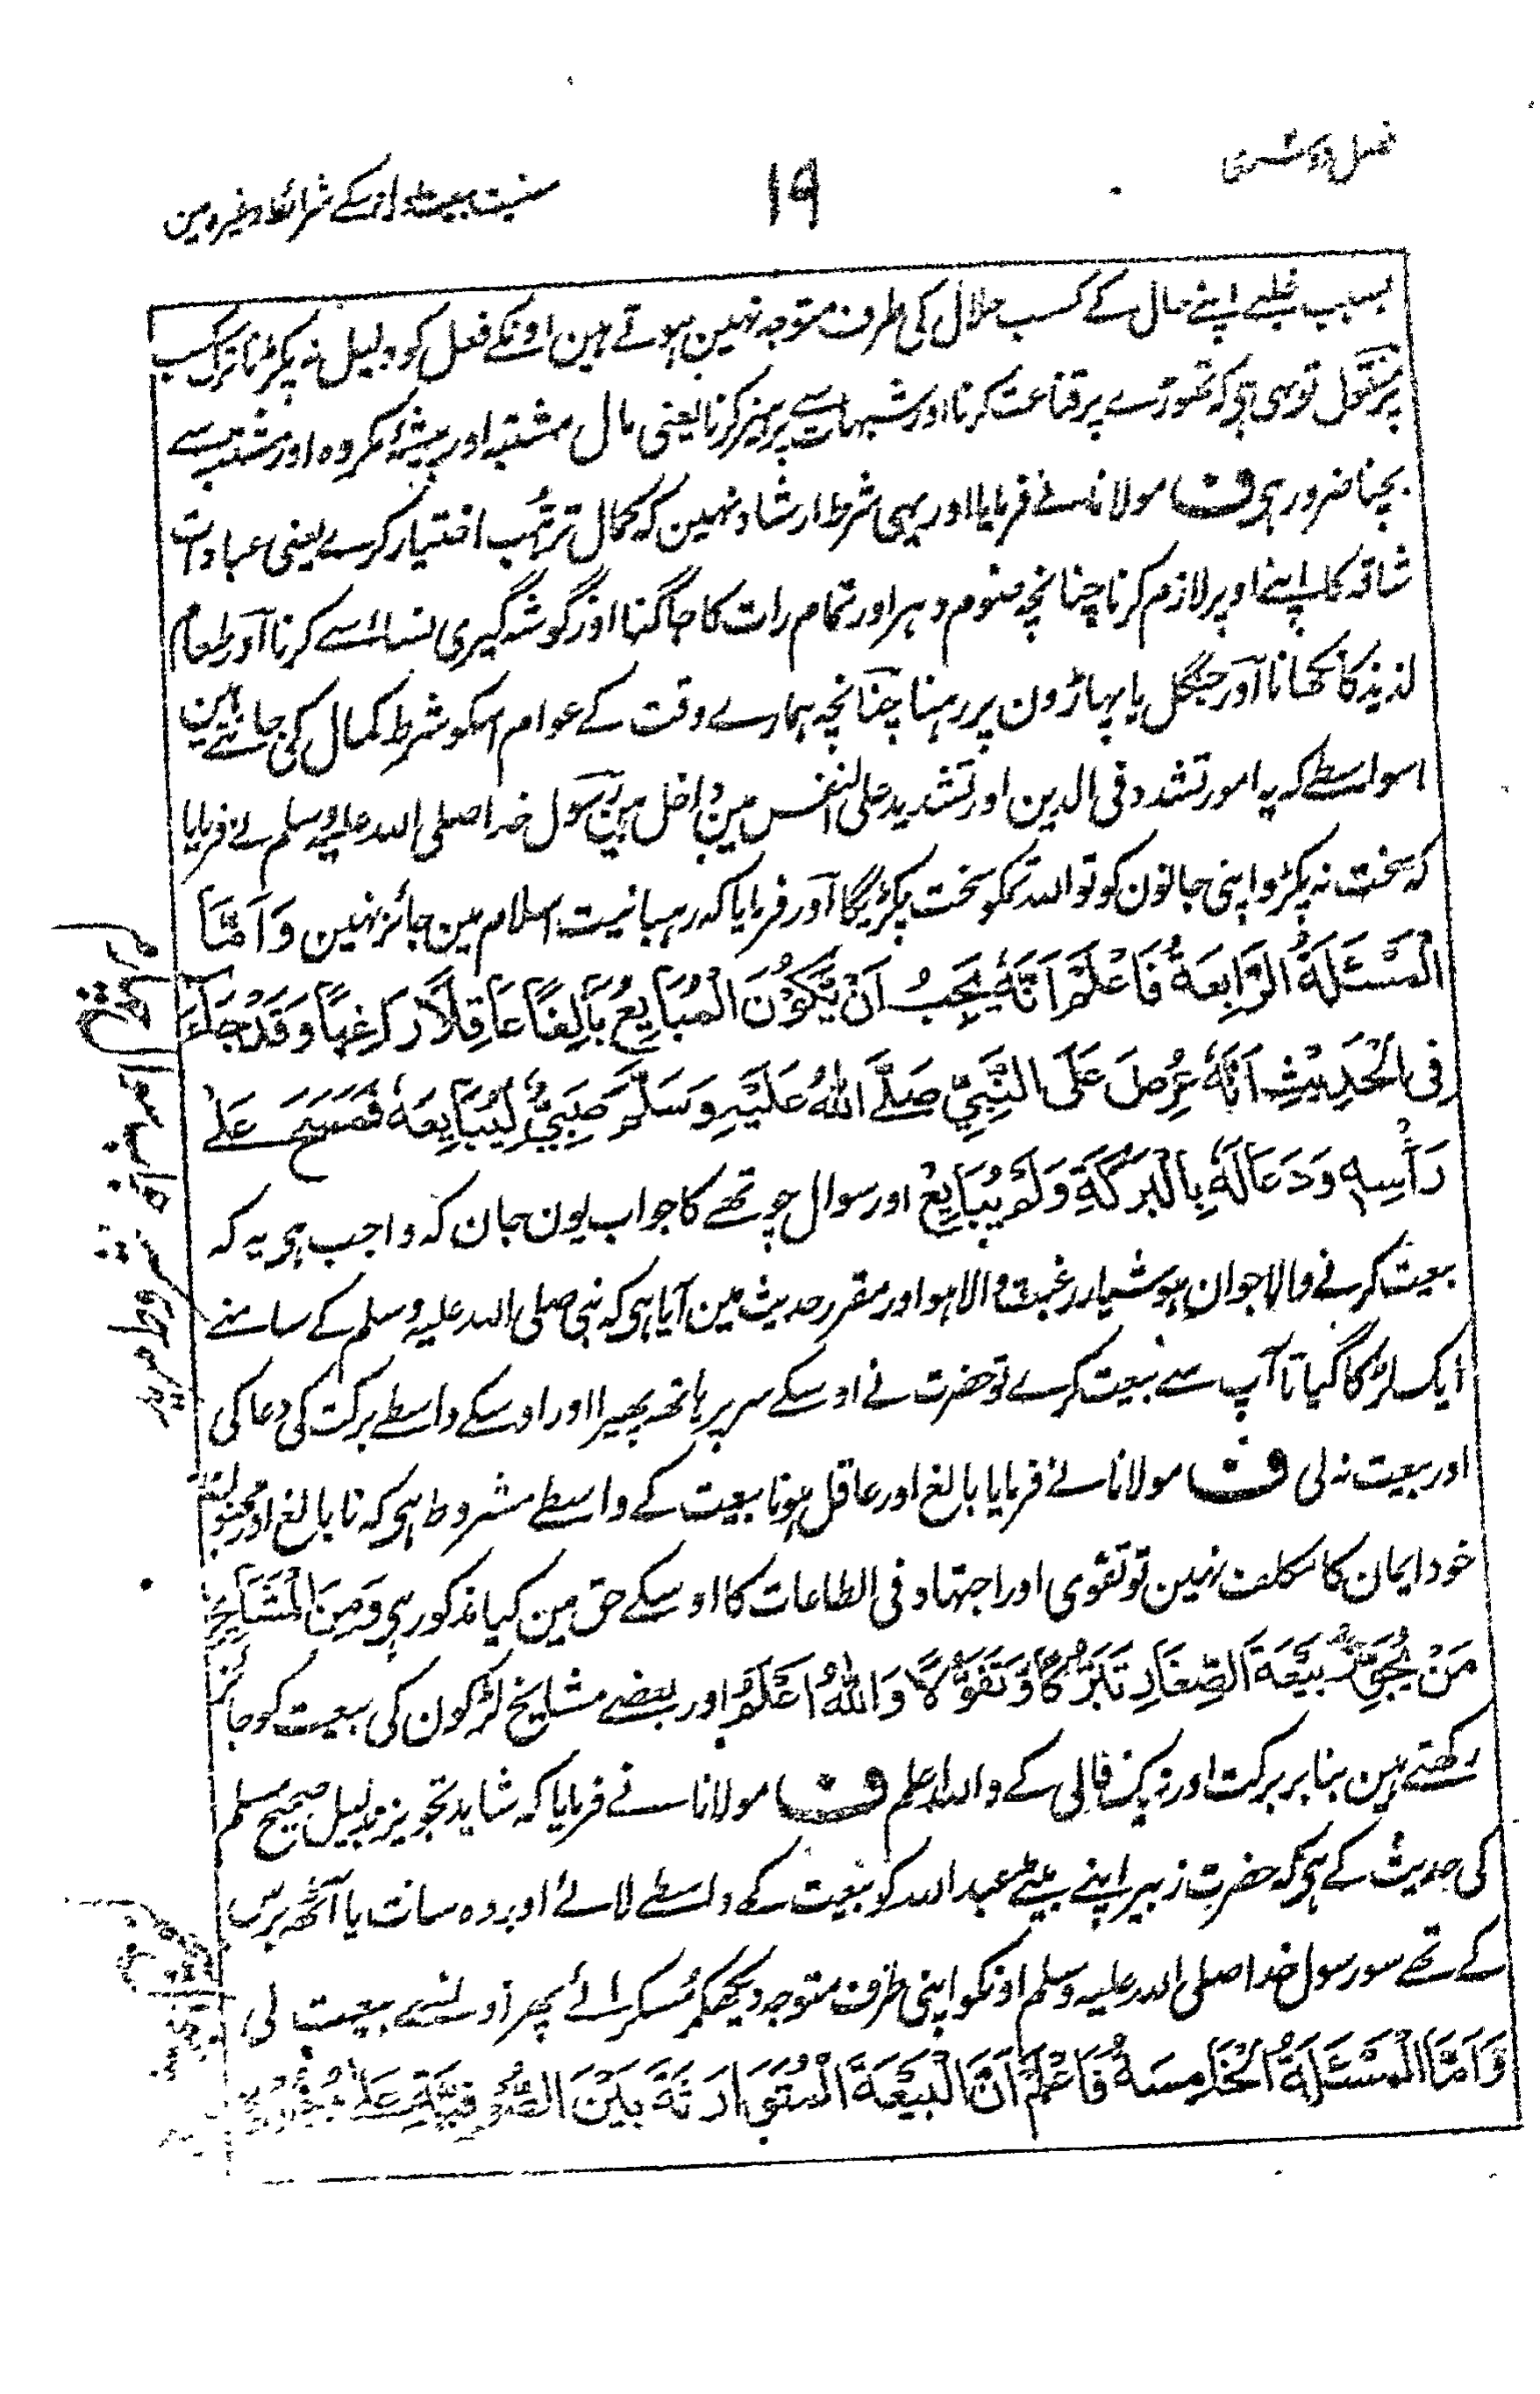 فصل دوسری
۱۹
سنیت بیعت اور اوسکے شرائط وغیرہ مین
بسبب غلبے اپنے حال کے کسب حلال کی طرف متوجہ نہین ہوتے ہین اونکے فعل کو دلیل نہ پکڑنا ترک کسب
پر منقول تو یہی ہی کہ تھوڑے پر قناعت کرنا اور شبہات سے پرہیز کرنا یعنی مال مشتبہ اور پیشۂ مکروہ اور مشتبہ سے
بچنا ضرور ہی ف مولانا نے فرمایا اور یہی شرط ارشاد نہین کہ کمال ترہب اختیار کرے یعنی عبادات
شاقہ کا اپنے اوپر لازم کرنا چنانچہ صوم دہر اور تمام رات کا جاگنا اور گوشہ گیری نساء سے کرنا اور طعام
لذیذ کا نکھانا اور جنگل یا پہاڑون پر رہنا چنانچہ ہمارے وقت کے عوام اسکو شرط کمال کی جانتے ہین
اسواسطے کہ یہ امور تشدد فی الدین اور تشدید علی النفس مین داخل ہین رسول خدا صلی اللہ علیہ وسلم نے فرمایا
کہ سخت نہ پکڑو اپنی جانون کو تو اللہ تمکو سخت پکڑیگا اور فرمایا کہ رہبانیت اسلام مین جائز نہین وَاَمَّا
الْمَسْئَلَةُ الرَّابِعَةُ فَاعْلَمْ اَنَّهٗ يَجِبُ اَنْ يَّكُوْنَ الْمُبَايِعُ بَالِغًا عَاقِلًا رَاغِبًا وَقَدْ جَاءَ
فِى الْحَدِيْثِ اَنَّهٗ عُرِضَ عَلَى النَّبِيِّ صَلَّى اللهُ عَلَيْهِ وَسَلَّمَ صَبِيٌّ لِيُبَايِعَهٗ فَمَسَحَ عَلٰى
رَأْسِهٖ وَدَعَا لَهٗ بِالْبَرَكَةِ وَلَمْ يُبَايِعْ اور سوال چوتھے کا جواب یون جان کہ واجب ہی یہ کہ
بیعت کرنے والا جوان ہوشیار رغبت والا ہو اور مقرر حدیث مین آیا ہی کہ نبی صلی اللہ علیہ وسلم کے سامنے
ایک لڑکا گیا تا آپ سے بیعت کرے تو حضرت نے اوسکے سر پر ہاتھ پھیرا اور اوسکے واسطے برکت کی دعا کی
اور بیعت نہ لی ف مولانا نے فرمایا بالغ اور عاقل ہونا بیعت کے واسطے مشروط ہی کہ نابالغ اور مجنون
خود ایمان کا مکلف نہین تو تقوی اور اجتہاد فی الطاعات کا اوسکے حق مین کیا مذکور ہی وَمِنَ الْمَشَايِخِ
مَنْ يُجَوِّزُ بَيْعَةَ الصِّغَارِ تَبَرُّكًا وَتَفَوُّلًا وَاللهُ اَعْلَمُ اور بعضے مشایخ لڑکون کی بیعت کو جائز
رکھتے ہین بنا بر برکت اور نیک فالی کے واللہ اعلم ف مولانا نے فرمایا کہ شاید تجویز بدلیل صحیح مسلم
کی حدیث کے ہی کہ حضرت زبیر اپنے بیٹے عبد اللہ کو بیعت کے واسطے لائے اور وہ سات یا آٹھ برس
کے تھے سو رسول خدا صلی اللہ علیہ وسلم اونکو اپنی طرف متوجہ دیکھکر مُسکرائے پھر اونسے بیعت لی
وَاَمَّا الْمَسْئَلَةُ الْخَامِسَةُ فَاعْلَمْ اَنَّ الْبَيْعَةَ الْمُتَوَارَثَةَ بَيْنَ الصُّوْفِيَّةِ عَلٰى